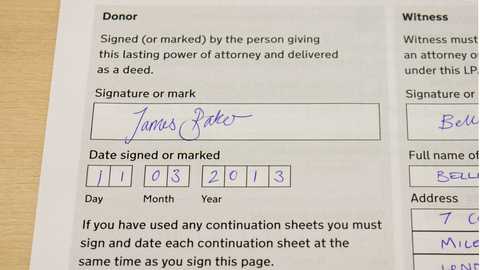 Donor
Signed (or marked) by the person giving
this lasting power of attorney and delivered
as a deed.
Signature or mark
James Baker
Date signed or marked
11 03 2013
Day Month Year
If you have used any continuation sheets you must
sign and date each continuation sheet at the
same time as you sign this page.
Witness
Witness must
an attorney o
under this LP
Signature or
Bell
Full name of
BELL
Address
7 C
MILE
LOND